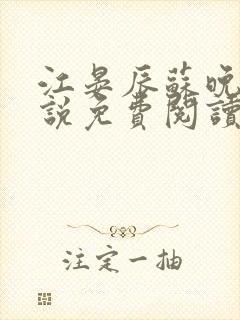 江晏辰蘇晚
說免費閱讀
注定一抽